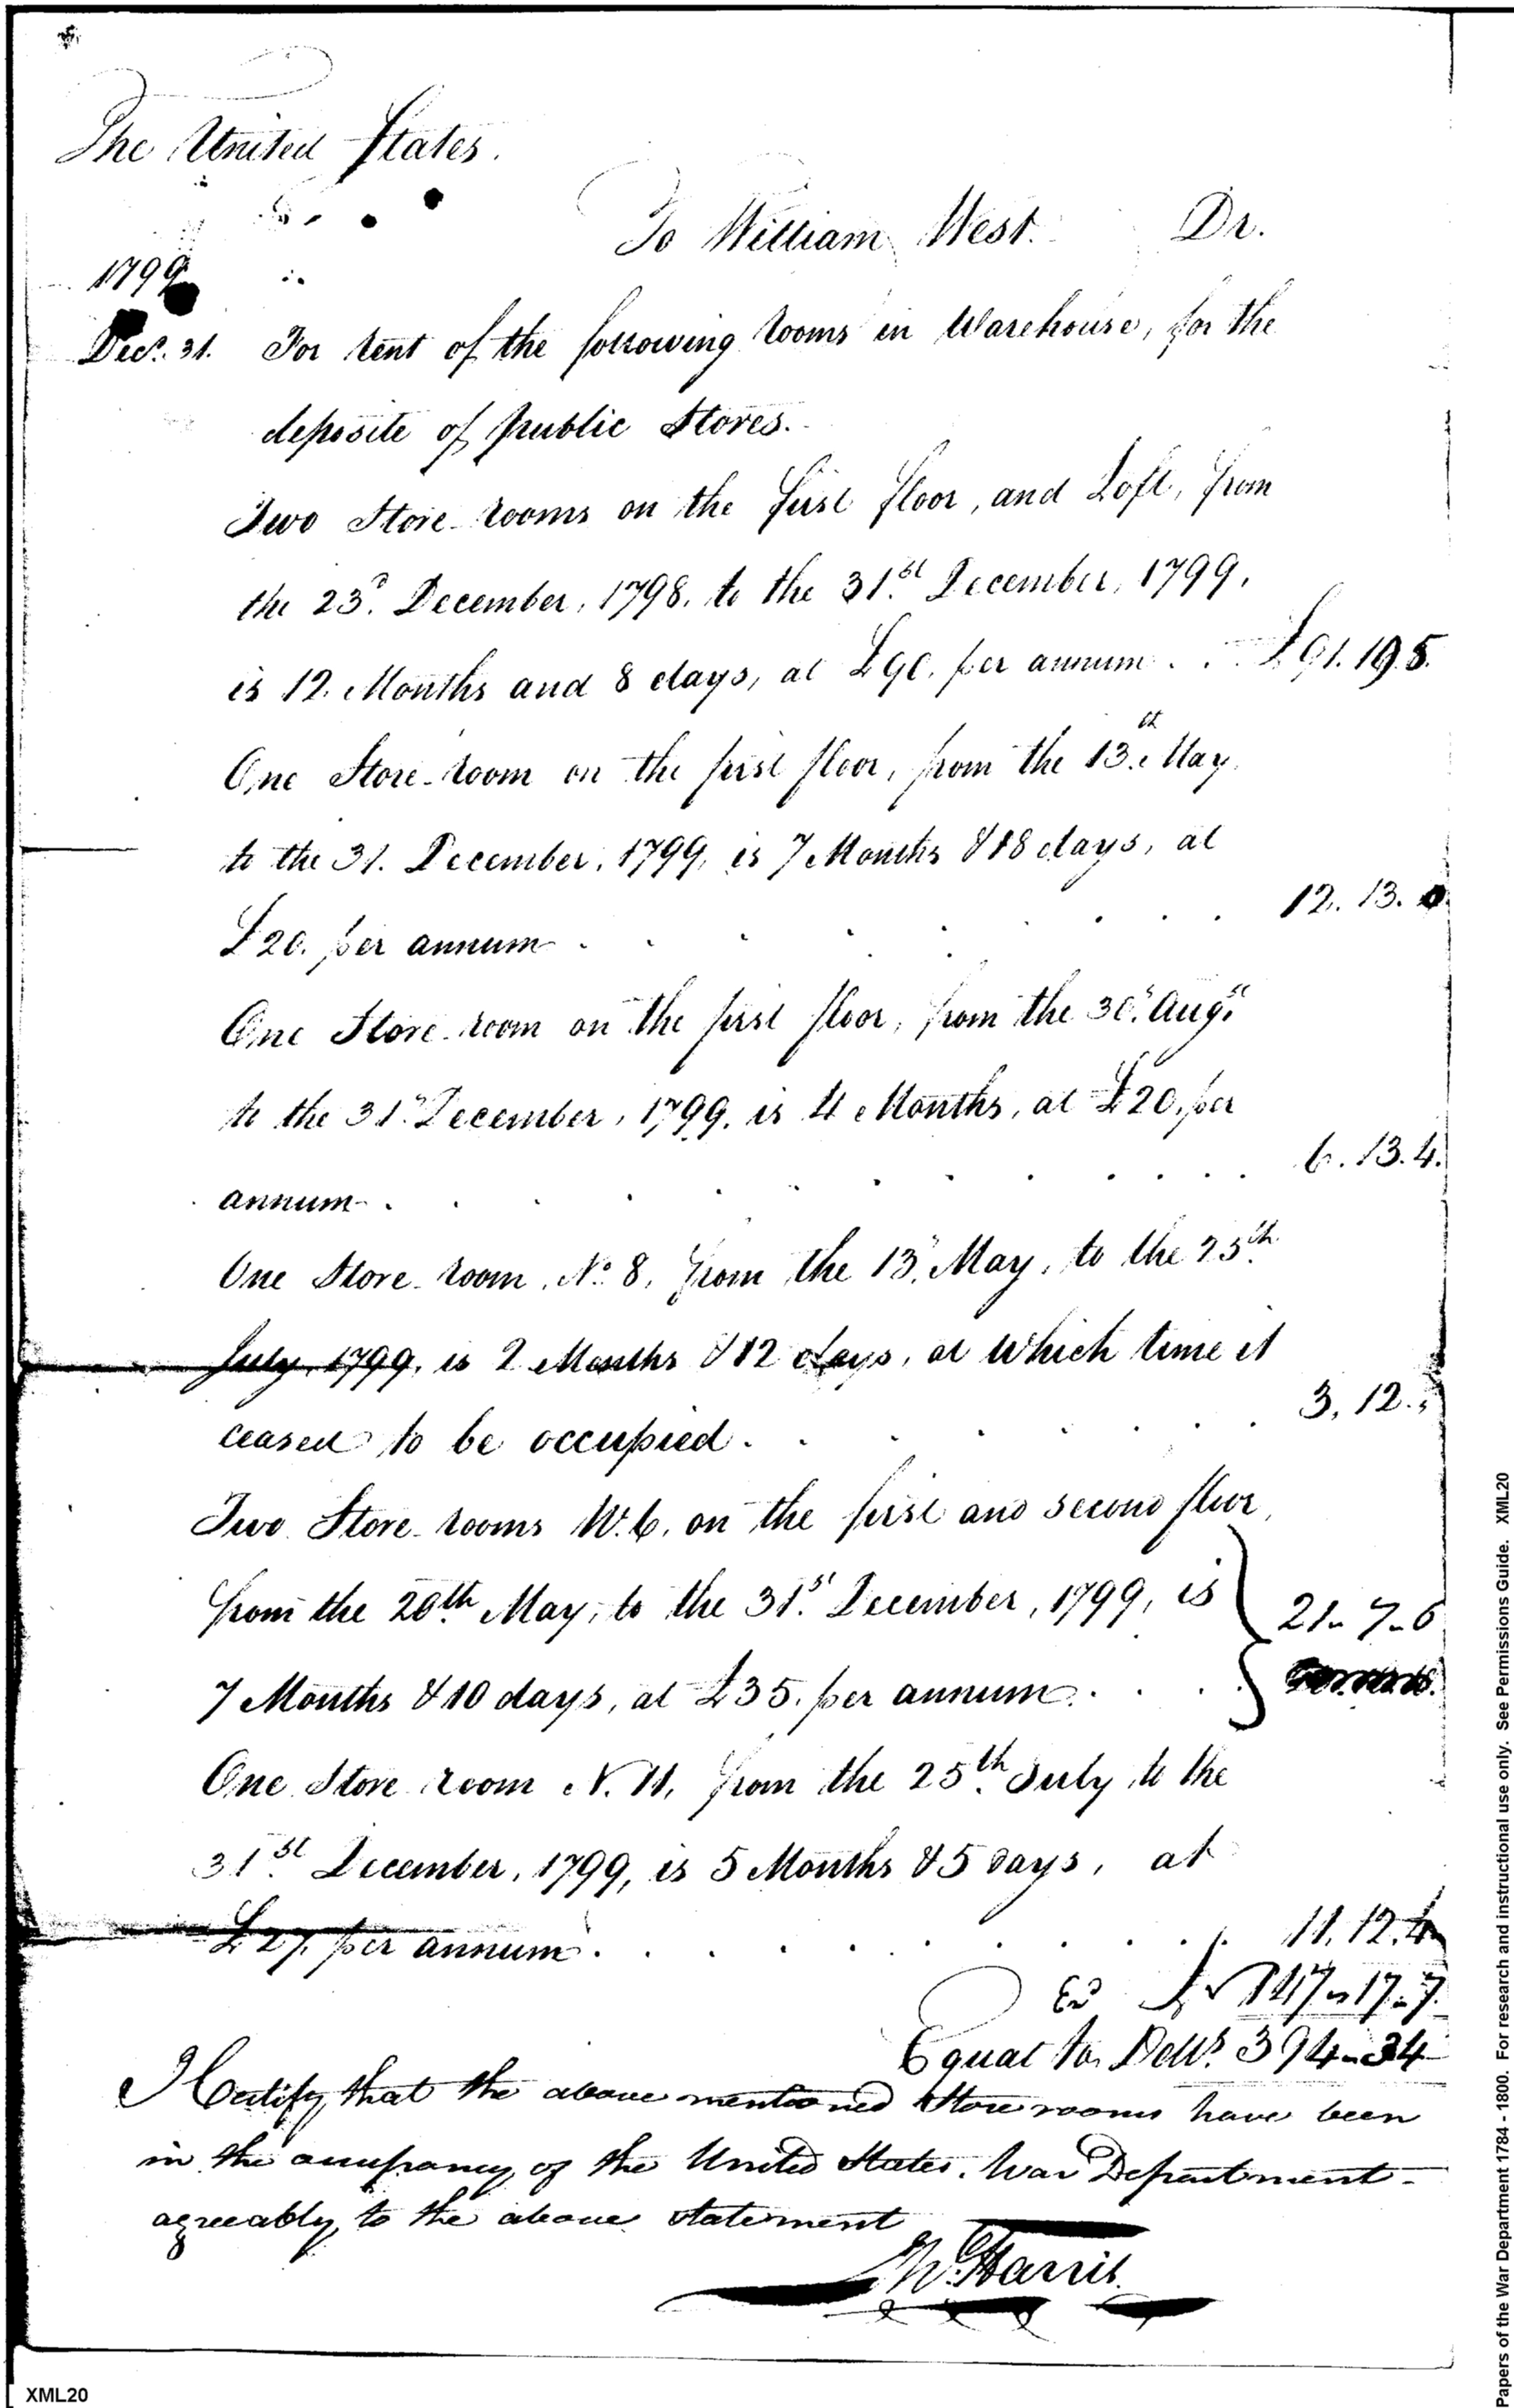 The United States.
To William West. Dr.
1799
Decr. 31. For rent of the following rooms in Warehouse, for the
deposite of public Stores.
Two Store-rooms on the first floor, and Loft, from
the 23d. December, 1798. to the 31st. December, 1799.
is 12. Months and 8 days, at £90. per annum . . £91.19.5.
One Store-room on the first floor, from the 13th. May
to the 31. December, 1799, is 7 Months & 18 days, at
£20. per annum . . . . . . . . 12. 13. 0.
One Store-room on the first floor, from the 30. Augst.
to the 31. December, 1799. is 4 Months, at £20. per
annum . . . . . . . . . . 6. 13. 4.
One Store-room, No. 8, from the 13. May, to the 25th.
July, 1799, is 2 Months & 12 days, at which time it
ceased to be occupied . . . . . . 3, 12. "
Two Store-rooms No. 6, on the first and second floor,
from the 20th. May, to the 31st. December, 1799, is
21-7-6
7 Months & 10 days, at £35. per annum . . . .
One Store-room N. 11, from the 25th. July to the
31st. December, 1799, is 5 Months & 5 days, at
£27. per annum . . . . . . . . . 11. 12. 4
Ed £147-17-7.
Equal to Dolls. 394-34
I Certify that the above mentioned Store rooms have been
in the occupancy of the United States War Department
agreeably to the above statement
Harris
XML20
Papers of the War Department 1784 - 1800. For research and instructional use only. See Permissions Guide. XML20